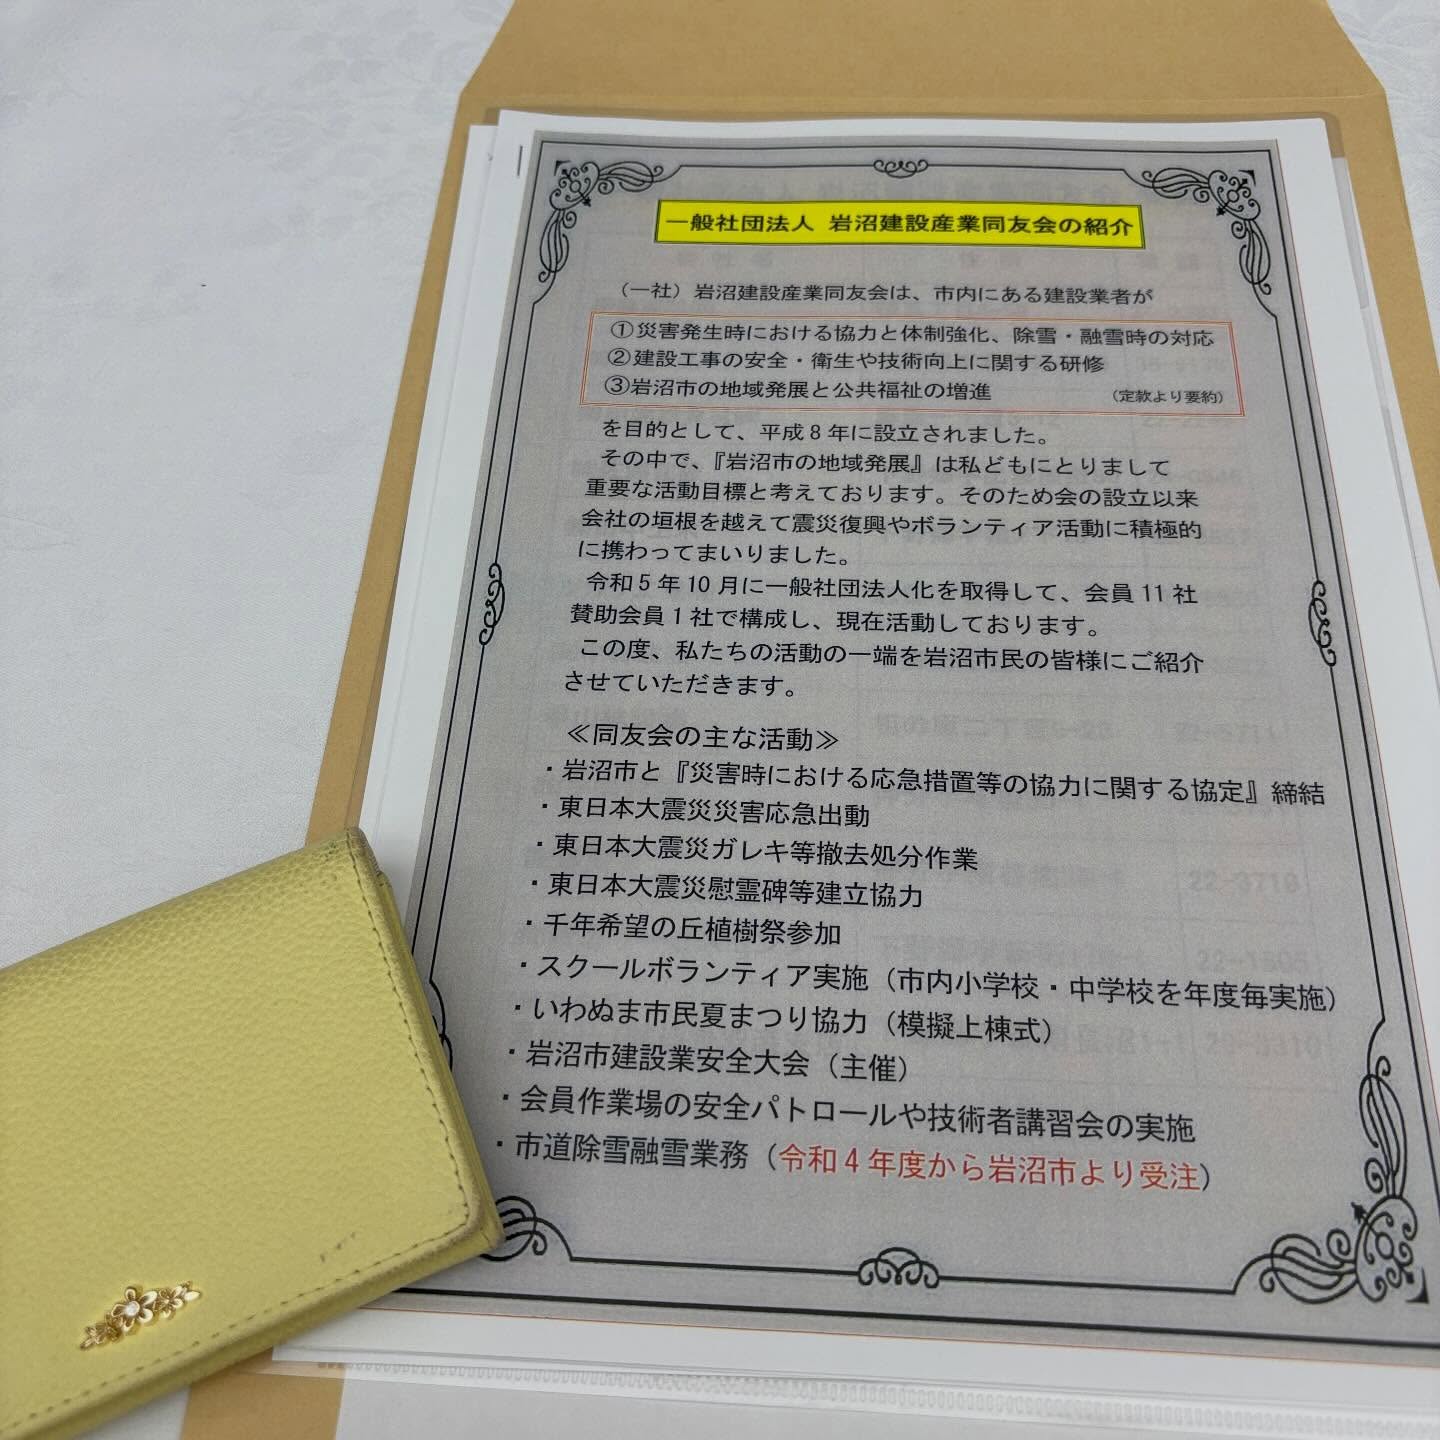 一般社団法人 岩沼建設産業同友会の紹介
（一社）岩沼建設産業同友会は、市内にある建設業者が
①災害発生時における協力と体制強化、除雪・融雪時の対応
②建設工事の安全・衛生や技術向上に関する研修
③岩沼市の地域発展と公共福祉の増進 （定款より要約）
を目的として、平成８年に設立されました。
その中で、『岩沼市の地域発展』は私どもにとりまして
重要な活動目標と考えております。そのため会の設立以来
会社の垣根を越えて震災復興やボランティア活動に積極的
に携わってまいりました。
令和５年 10 月に一般社団法人化を取得して、会員 11 社
賛助会員１社で構成し、現在活動しております。
この度、私たちの活動の一端を岩沼市民の皆様にご紹介
させていただきます。
≪同友会の主な活動≫
・岩沼市と『災害時における応急措置等の協力に関する協定』締結
・東日本大震災災害応急出動
・東日本大震災ガレキ等撤去処分作業
・東日本大震災慰霊碑等建立協力
・千年希望の丘植樹祭参加
・スクールボランティア実施（市内小学校・中学校を年度毎実施）
・いわぬま市民夏まつり協力（模擬上棟式）
・岩沼市建設業安全大会（主催）
・会員作業場の安全パトロールや技術者講習会の実施
・市道除雪融雪業務（令和４年度から岩沼市より受注）